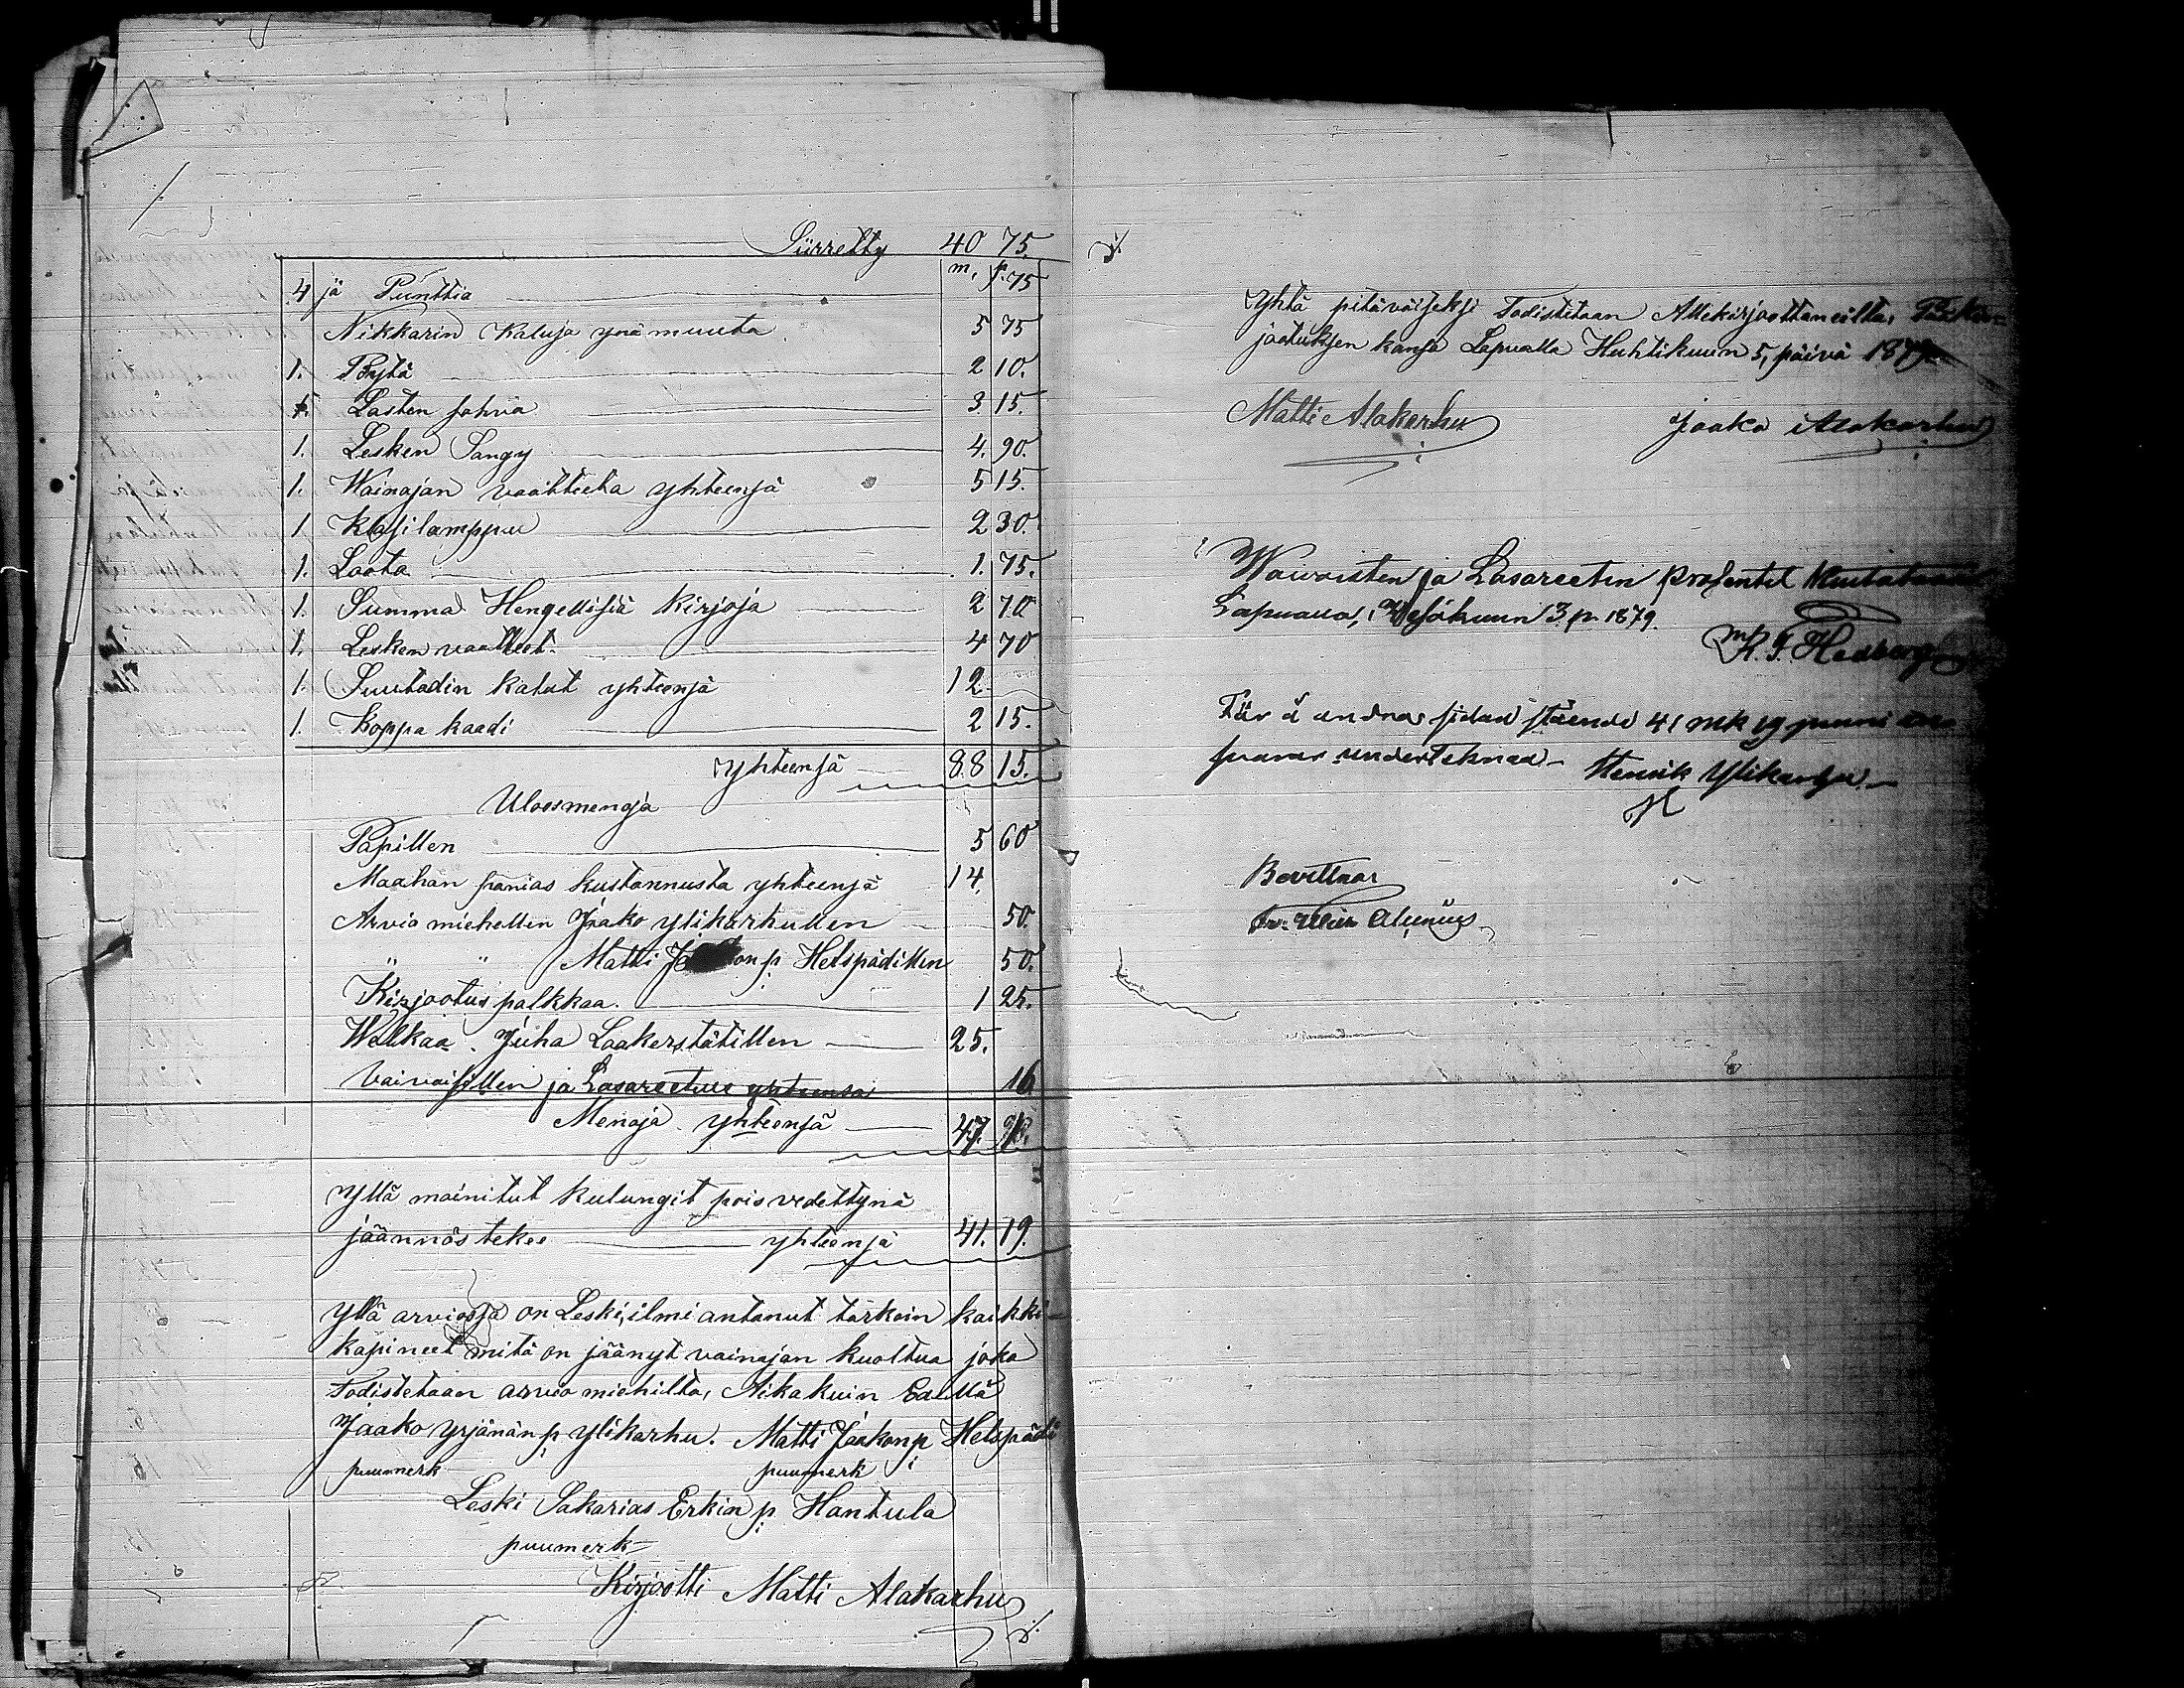 Siirretty 40 75.
m. p.
4 jä Punttia 75
Nikkarin Kaluja ynä muuta 5 75
1. Pöytä 2 10.
1. Lasten sohva 3 15.
1. Lesken Sängy 4. 90.
1. Wainajan vaatteeta yhteensä 5 15.
1 Klasilamppu 2 30.
1. Laata 1. 75.
1. Summa Hengellisiä Kirjoja 2 70
1. Lesken vaatteet. 4 70
1. Suutadin kalut yhteensä 12
1. Koppa kaadi 2 15.
yhteensä 88 15.
Uloosmenoja
Papillen 5 60
Maahan panias kustannusta yhteensä 14,
Arvio miehellen Jaako ylikarhullen 50.
" " Matti p. Helspädillen 50.
Kirjootus palkkaa. 1 25.
Welkaa. Juha Laakerstätillen 25.
Vaivaisillen ja Lasareetille yhteensä 16
Menoja yhteensä 47.
yllä mainitut kulungit pois vedettynä
jäännös tekee yhteensä 41. 19.
yllä arviossa on Leski, ilmi antanut tarkoin kaikki
kapineet mitä on jäänyt vainajan kuoltua joka
todistetaan arvio miehiltä, Aika kuin Edellä
Jaako yrjänän p. ylikarhu. Matti Jaakon p. Helspädi
puumerk puumerk
Leski Sakarias Erkin p. Hantula
puumerk
Kirjootti Matti Alakarhu
yhtä pitäväiseksi todistetaan Allekirjoottaneilta,
jootuksen kansa Lapualla Huhtikuun 5, päivä 1879
Matti Alakarhu Jaako Alakarhu
Waivaisten ja Lasareetin prosentit
Lapualla, Kesäkuun 3 p. 1879.
K. J. Hedberg
För å andra sidan stående 41 mk 19 penni an-
svarar undertecknad - Henrik Ylikarhu
Bevittnar